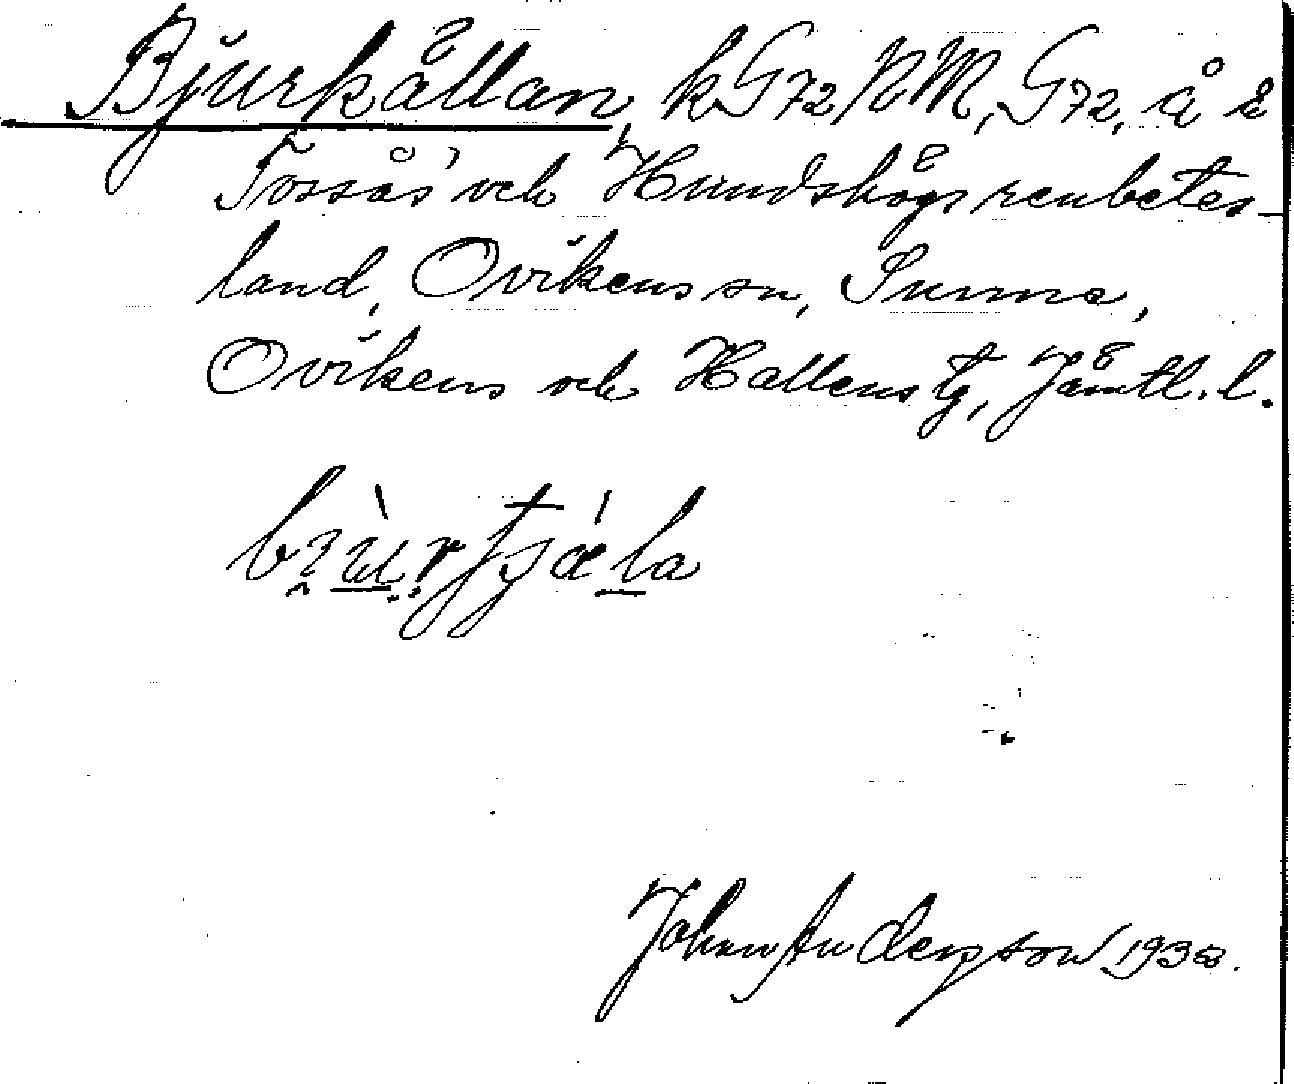 Bjurkällan, k G72/NM, G72, å å
Tossås' och Hundshögs renbetes-
land, Ovikens sn, Sunne,
Ovikens och Hallens tg, Jämtl. l.
John Anderson 1938.